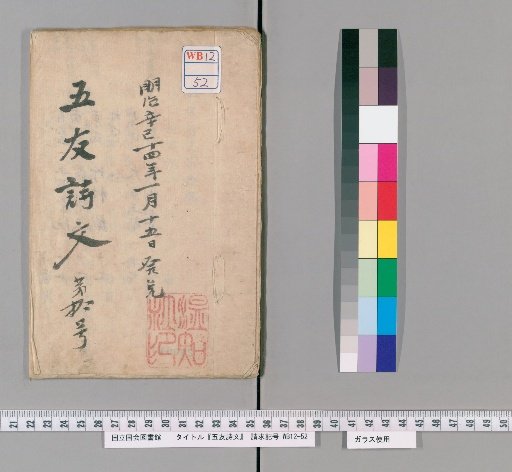 五友詩文
第拾号
明治辛巳十四年一月十五日発兌
WB12
52
21 22 23 24 25 26 27 28 29 30 31 32 33 34 35 36 37 38 39 40 41 42 43 44 45 46 47 48 49 50
国立国会図書館 タイトル『五友詩文』 請求記号 WB12-52
ガラス使用